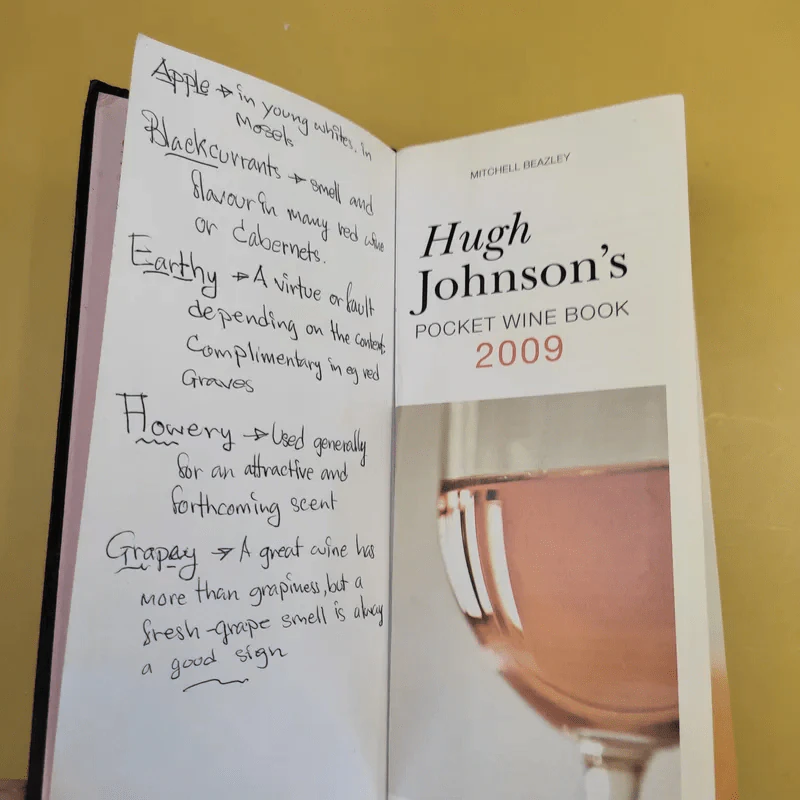 Apple → in young whites, in
Mosels
Blackcurrants → smell and
flavour in many red wine
or Cabernets.
Earthy → A virtue or fault
depending on the context.
Complimentary in eg red
Graves
Flowery → Used generally
for an attractive and
forthcoming scent
Grapey → A great wine has
more than grapiness, but a
fresh-grape smell is alway
a good sign
MITCHELL BEAZLEY
Hugh
Johnson's
POCKET WINE BOOK
2009